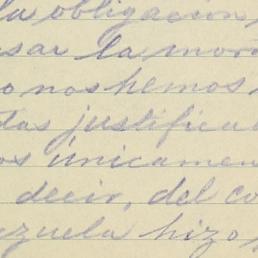 la obligación
sar la mora
o nos hemos
das justifica
os únicamen
decir, del co
ezuela hizo